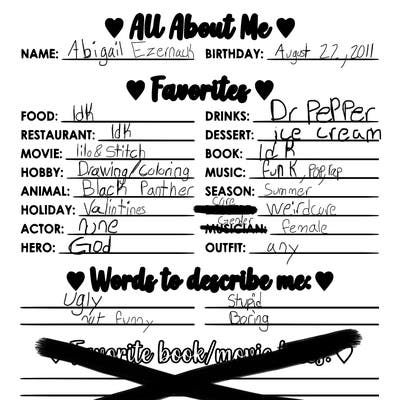 ♥ All About Me ♥
NAME: Abigail Ezernack BIRTHDAY: August 22, 2011
♥ Favorites ♥
FOOD: Idk DRINKS: Dr Pepper
RESTAURANT: Idk DESSERT: ice cream
MOVIE: lilo & Stitch BOOK: Idk
HOBBY: Drawing/Coloring MUSIC: Funk, Pop, rap
ANIMAL: Black Panther SEASON: Summer
HOLIDAY: Valintines Core weirdcore
ACTOR: none Gender MUSICIAN: female
HERO: God OUTFIT: any
♥ Words to describe me: ♥
Ugly Stupid
not funny Boring
♡ Favorite book/movie ♡